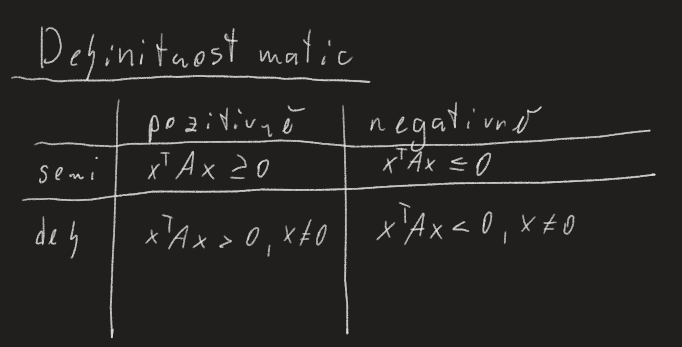 Definitnost matic
pozitivně negativně
semi xᵀAx ≥ 0 xᵀAx ≤ 0
def xᵀAx > 0, x≠0 xᵀAx < 0, x≠0